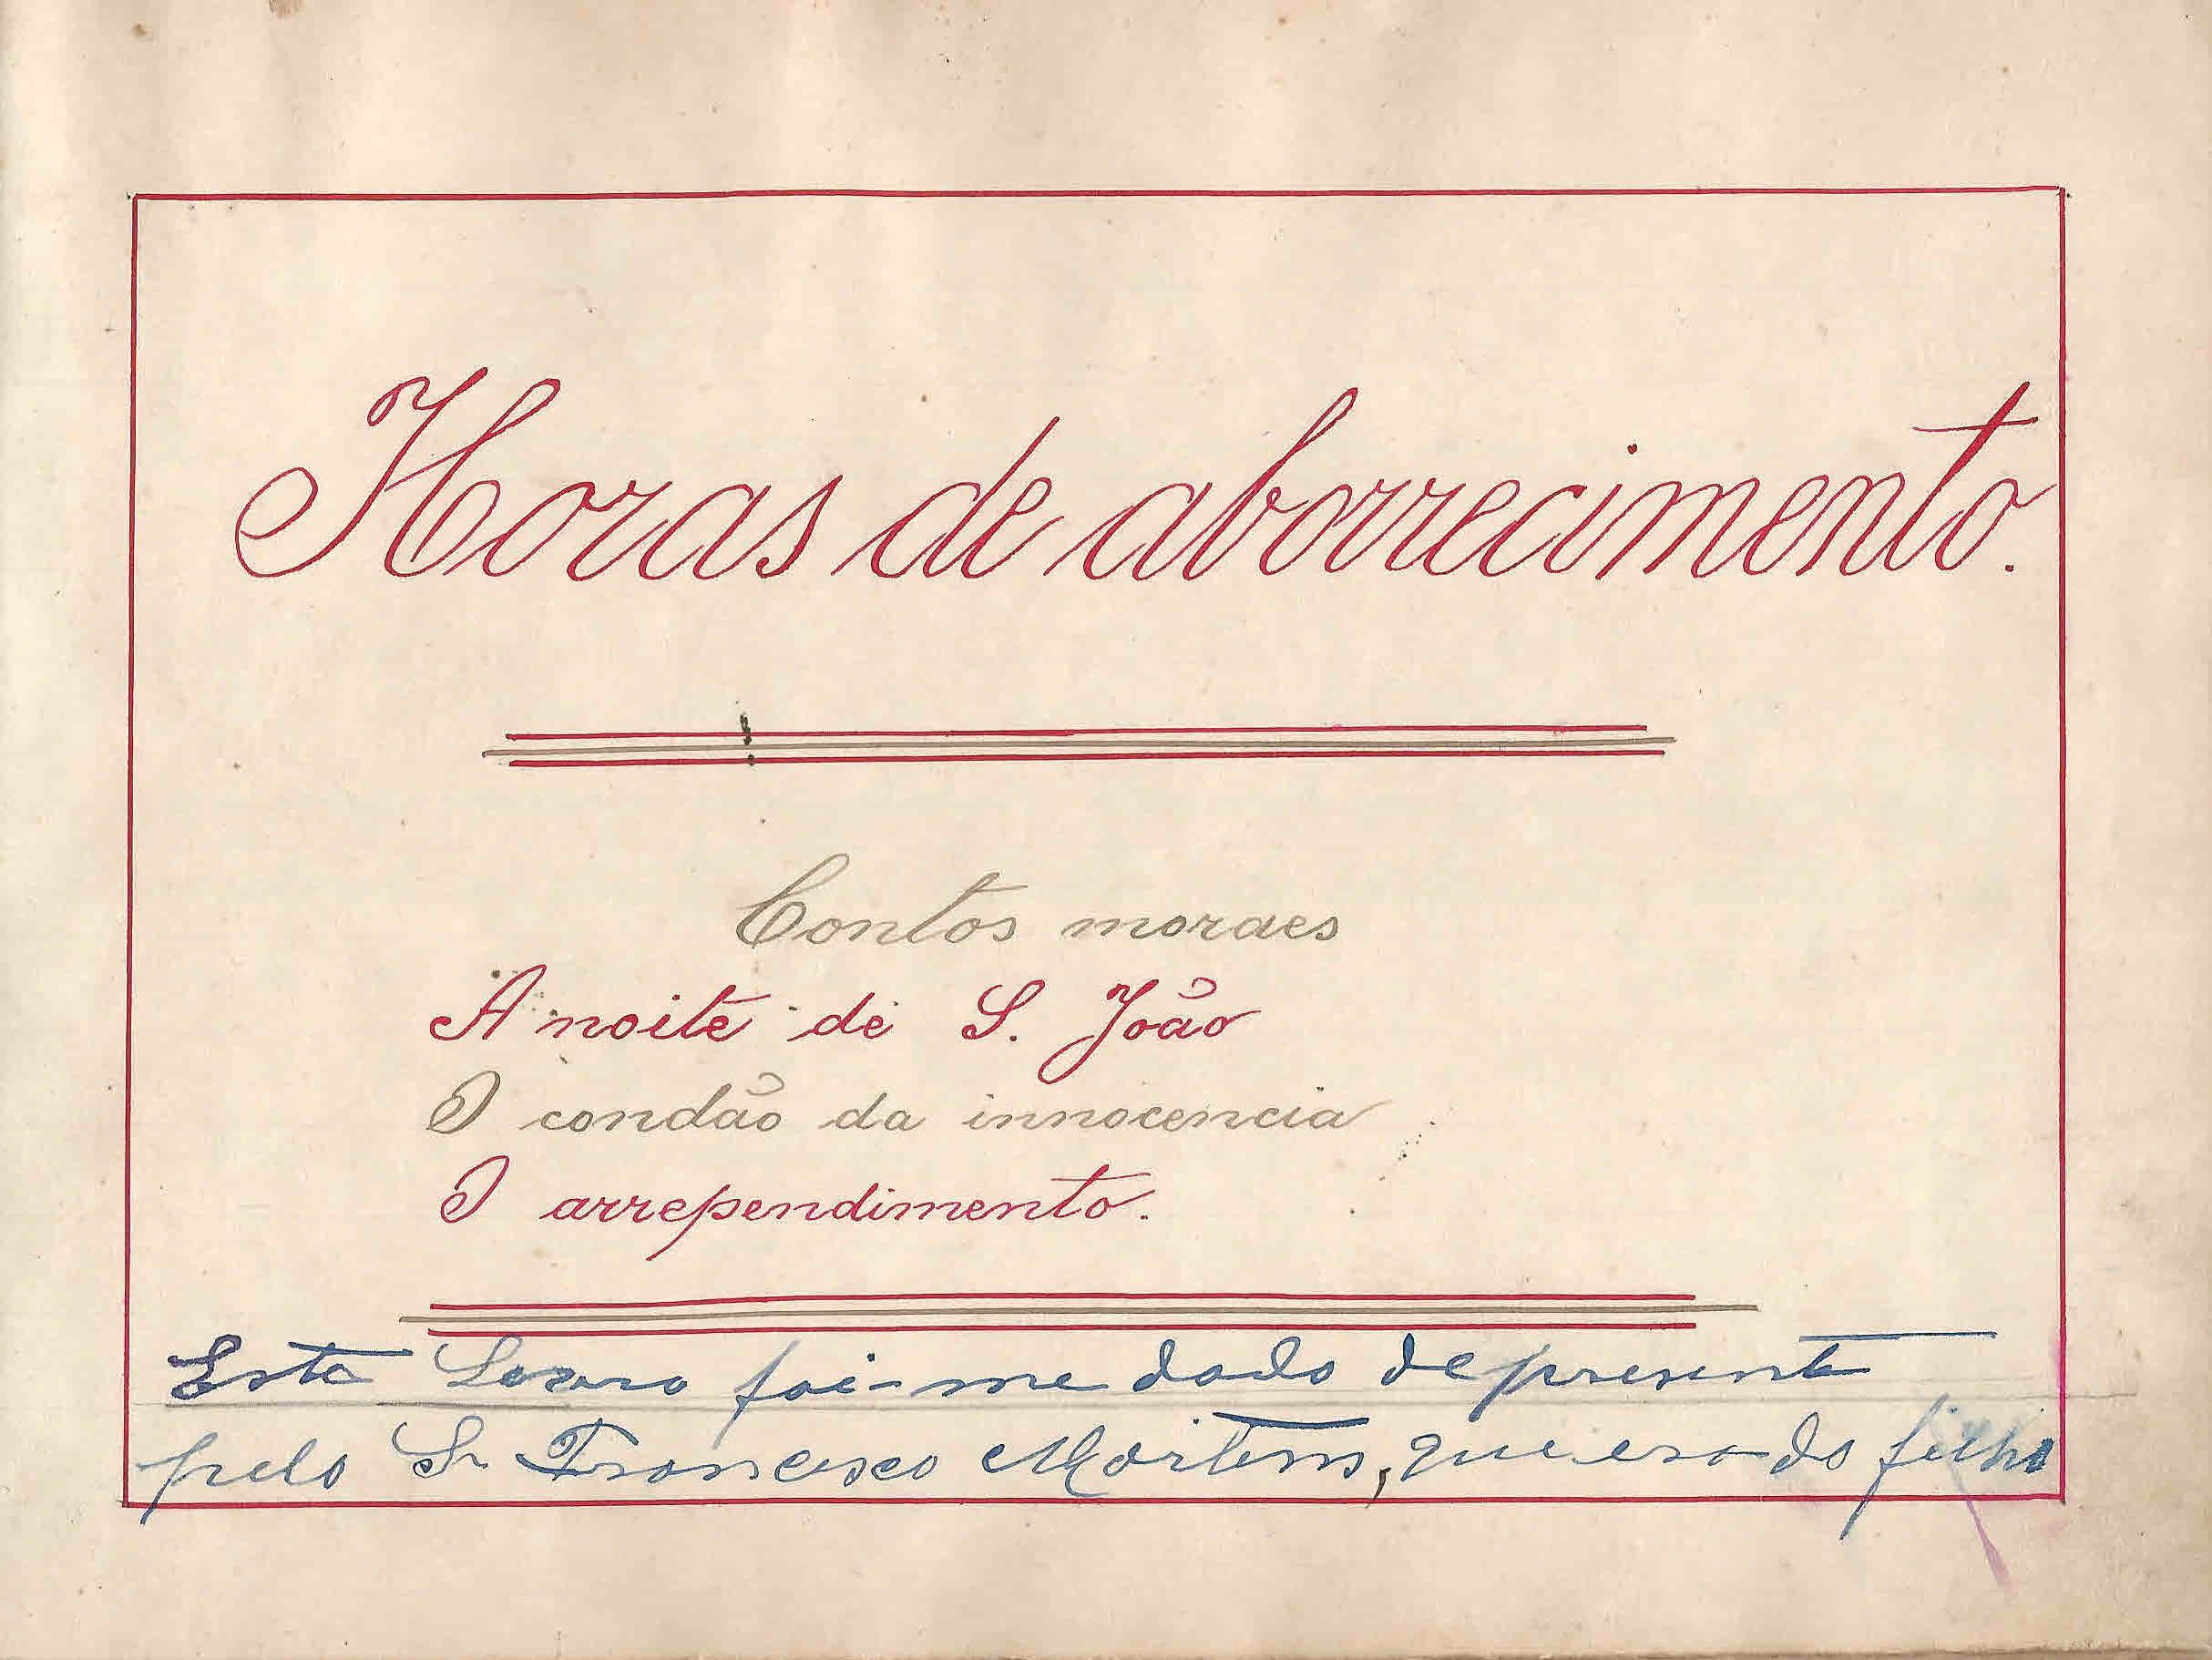 Horas de aborrecimento.
Contos moraes
A noite de S. João
O condão da innocencia
O arrependimento.
Este foi-me dado de presente
pelo Sr Francisco Martins, que era do filho